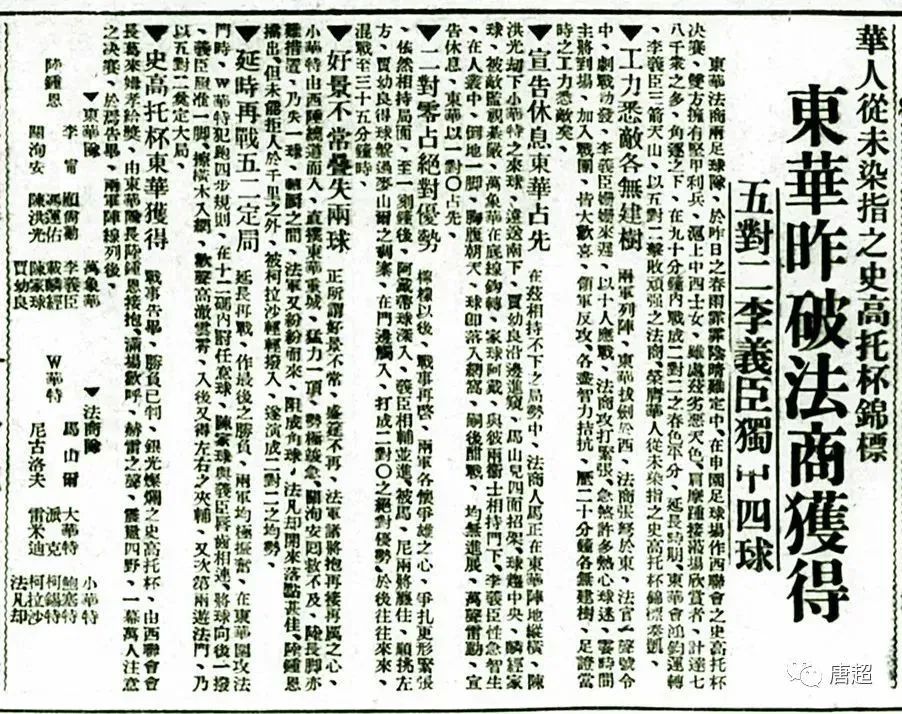 華人從未染指之史高托杯錦標
東華昨破法商獲得
五對二李義臣獨中四球
東華法商兩足球隊、於昨日之春雨霏霏陰晴難定中、在申園足球場作西聯會之史高托杯
決賽、雙方擁有堅甲利兵、滬上中西士女、雖處惡天色、肩摩踵接蒞場欣賞者、計達七
八千衆之多、角逐之下、在九十分鐘內戰成二對二之春色平分、延長時期、東華會鴻鈞運轉
、李義臣三箭天山、以五對二擊敗頑强之法商、榮膺華人從未染指之史高托杯錦標奏凱、
▼工力悉敵各無建樹
兩軍列陣、東華拔劍於西、法商張弩於東、法官一聲號令
中、劇戰動發、李義臣姍姍來遲、以十人應戰、法商攻打緊張、急煞許多熱心球迷、霎時間
主將到場、加入戰團、皆大歡喜、領軍反攻、各盡智力拮抗、歷二十分鐘各無建樹、足證當
時之工力悉敵矣、
▼宣告休息東華占先
在茲相持不下之局勢中、法商人馬正在東華陣地縱橫、陳
洪光刧下小華特之來球、遠送南下、賈幼良沿邊進窺、馬山兒四面招架、球趨中央、麟經家
球、被敵監視綦嚴、萬象華在底線鈎轉、家球阿戴、與彼兩衞士相持門下、李義臣性急智生
、在人叢中、倒地一脚、胸腹朝天、球卽落入網窩、嗣後酣戰、均無進展、萬聲雷動、宣
告休息、東華以一對〇占先、
▼二對零占絕對優勢
檸檬以後、戰事再啓、兩軍各懷爭雄之心、爭扎更形緊張
、依然相持局面、至一刻鐘後、阿戴帶球深入、義臣相輔並進、被馬、尼兩將雙住、顧挑左
方、賈幼良得球盤過麥山爾之剌寨、在門邊觸入、打成二對〇之絕對優勢、於後往往來來、
混戰至三十五分鐘時、
▼好景不常疊失兩球
正所謂好景不常、盛筵不再、法軍諸將抱再接再厲之心、
小華特由西陣繞道而入、直擾東華重城、猛力一頂、勢極緊急、關洵安因救不及、陸長脚亦
難措置、乃失一球、轉瞬之間、法軍又紛紛而來、附成角球、法凡却開來落點甚佳、陸鍾恩
擋出、但未能拒人於千里之外、被柯拉沙輕輕撥入、遂演成二對二之均勢、
▼延時再戰五二定局
延長再戰、作最後之勝負、兩軍均極振奮、在東華圍攻法
門時、W華特犯跑四步規則、在十二碼內罰任意球、陳家球與義臣唇齒相連、將球向後一撥
、義臣照准一脚、擦橫木入網、歡聲高澈雲霄、入後又得左右之夾輔、又次第兩遊法門、乃
以五對二奠定大局、
▼史高托杯東華獲得
戰事告畢、勝負已判、銀光燦爛之史高托杯、由西聯會會
長葛萊姆孝給獎、由東華隊長陸鍾恩接抱、滿場歡呼、赫雷之聲、震驚四野、一幕萬人注意
之決賽、於焉告畢、兩軍陣線列後、
▼東華隊
陸鍾恩
李甯 關洵安
顧尙勷 馮運佑 陳洪光
萬象華 李義臣 戴麟經 陳家球 賈幼良
▼法商隊
W華特
馬山爾 尼古洛夫
大華特 派克 雷米迪
小華特 鮑塞特 柯錫特 柯拉沙 法凡却
唐超